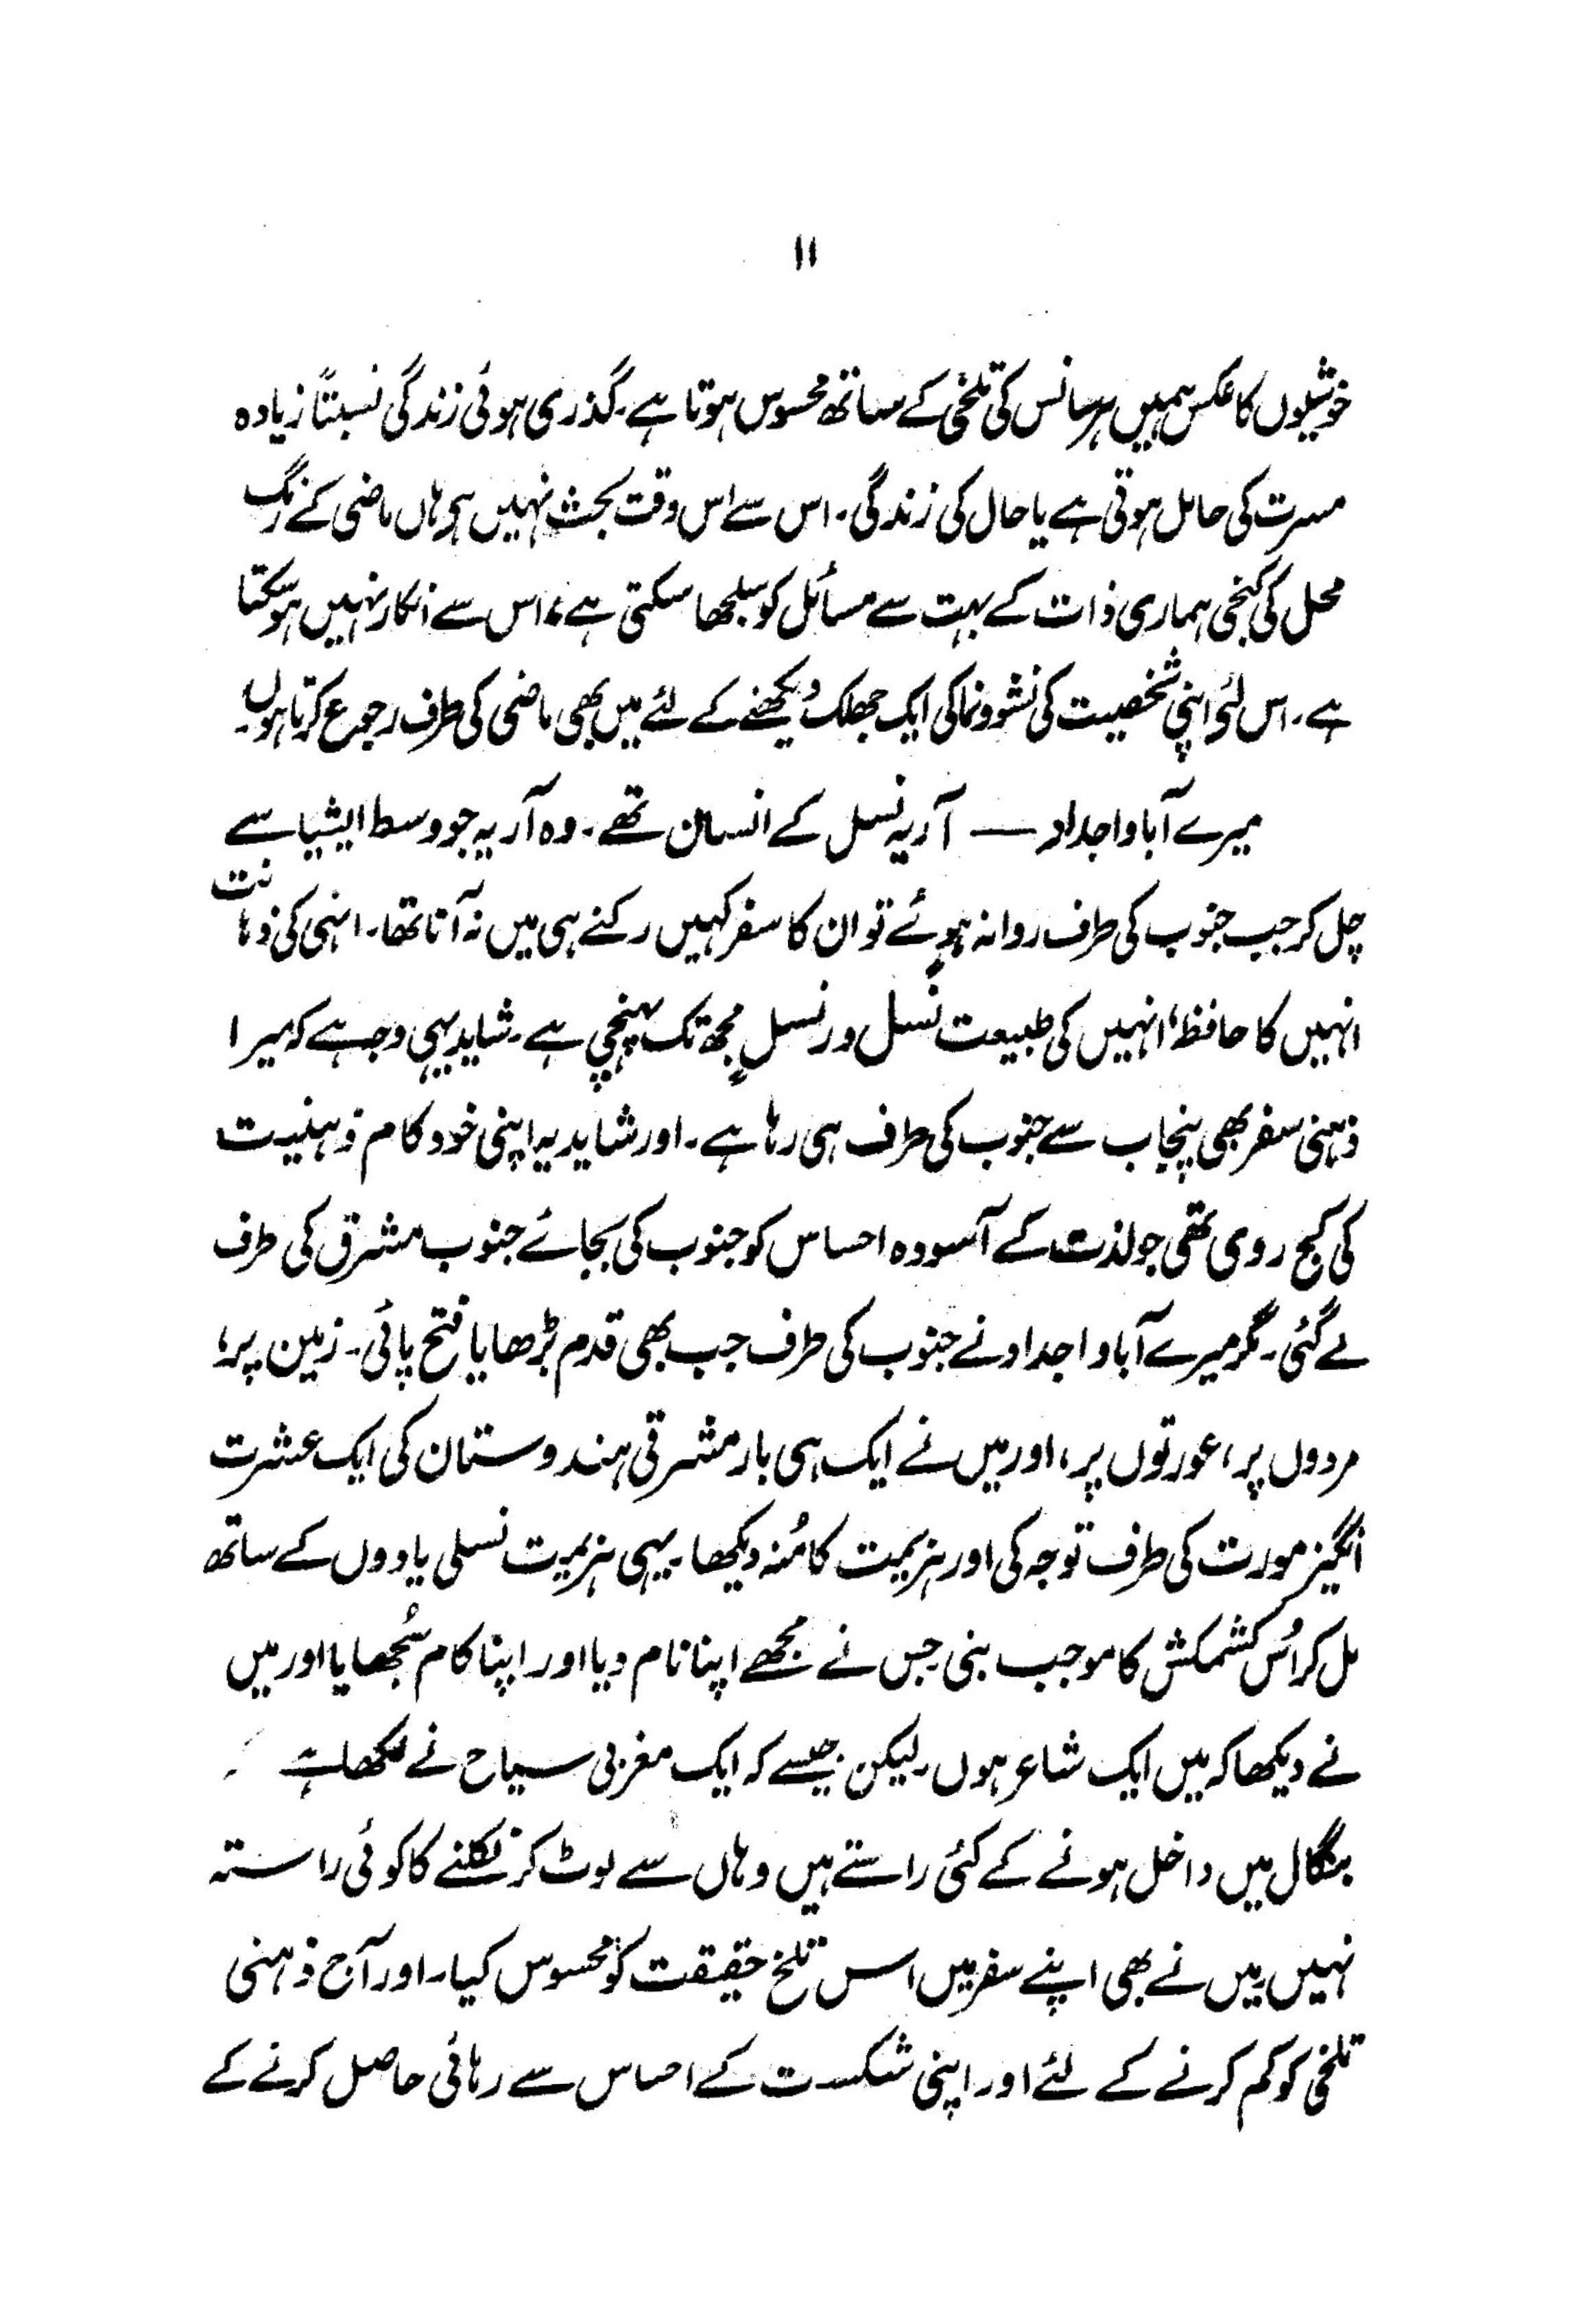 ۱۱
خوشیوں کا عکس ہمیں ہر سانس کی تلخی کے ساتھ محسوس ہوتا ہے۔ گذری ہوئی زندگی نسبتاً زیادہ
مسرت کی حامل ہوتی ہے یا حال کی زندگی۔ اس سے اس وقت بحث نہیں ہے ہاں ماضی کے رنگ
محل کی کنجی ہماری ذات کے بہت سے مسائل کو سلجھا سکتی ہے، اس سے انکار نہیں ہو سکتا
ہے۔ اس لئے اپنی شخصیت کی نشوونما کی ایک جھلک دیکھنے کے لئے میں بھی ماضی کی طرف رجوع کرتا ہوں۔
میرے آبا و اجداد — آریہ نسل کے انسان تھے۔ وہ آریہ جو وسط ایشیا سے
چل کر جب جنوب کی طرف روانہ ہوئے تو ان کا سفر کہیں رکنے ہی میں نہ آتا تھا۔ انہی کی ذہانت
انہیں کا حافظہ، انہیں کی طبیعت نسل در نسل مجھ تک پہنچی ہے۔ شاید یہی وجہ ہے کہ میرا
ذہنی سفر بھی پنجاب سے جنوب کی طرف ہی رہا ہے۔ اور شاید یہ اپنی خود کام ذہنیت
کی کج روی تھی جو لذت کے آسودہ احساس کو جنوب کی بجائے جنوب مشرق کی طرف
لے گئی۔ مگر میرے آبا و اجداد نے جنوب کی طرف جب بھی قدم بڑھایا فتح پائی۔ زمین پر،
مردوں پر، عورتوں پر، اور میں نے ایک ہی بار مشرقی ہندوستان کی ایک عشرت
انگیز مورت کی طرف توجہ کی اور ہزیمت کا مُنہ دیکھا۔ یہی ہزیمت نسلی یادوں کے ساتھ
مل کر اُس کشمکش کا موجب بنی جس نے مجھے اپنا نام دیا اور اپنا کام سُجھایا اور میں
نے دیکھا کہ میں ایک شاعر ہوں۔ لیکن جیسے کہ ایک مغربی سیاح نے لکھا ہے
بنگال میں داخل ہونے کے کئی راستے ہیں وہاں سے لوٹ کر نکلنے کا کوئی راستہ
نہیں۔ میں نے بھی اپنے سفر میں اس تلخ حقیقت کو محسوس کیا۔ اور آج ذہنی
تلخی کو کم کرنے کے لئے اور اپنی شکست کے احساس سے رہائی حاصل کرنے کے